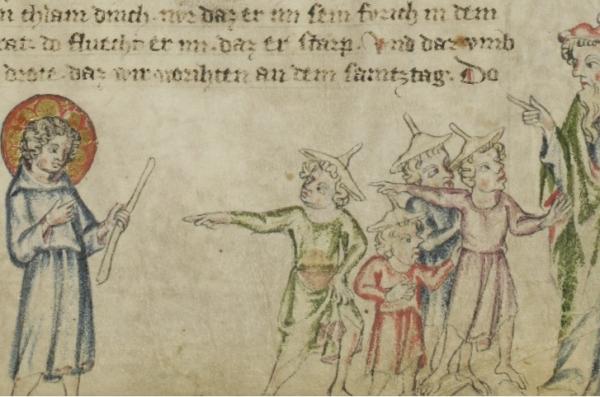 n chlain druch. nvr daz er im sein fvrich in dem
rat. do fluecht er im. daz er starp. Vnd dar vmb
drote. daz wir worihten an dem samtztag. Do